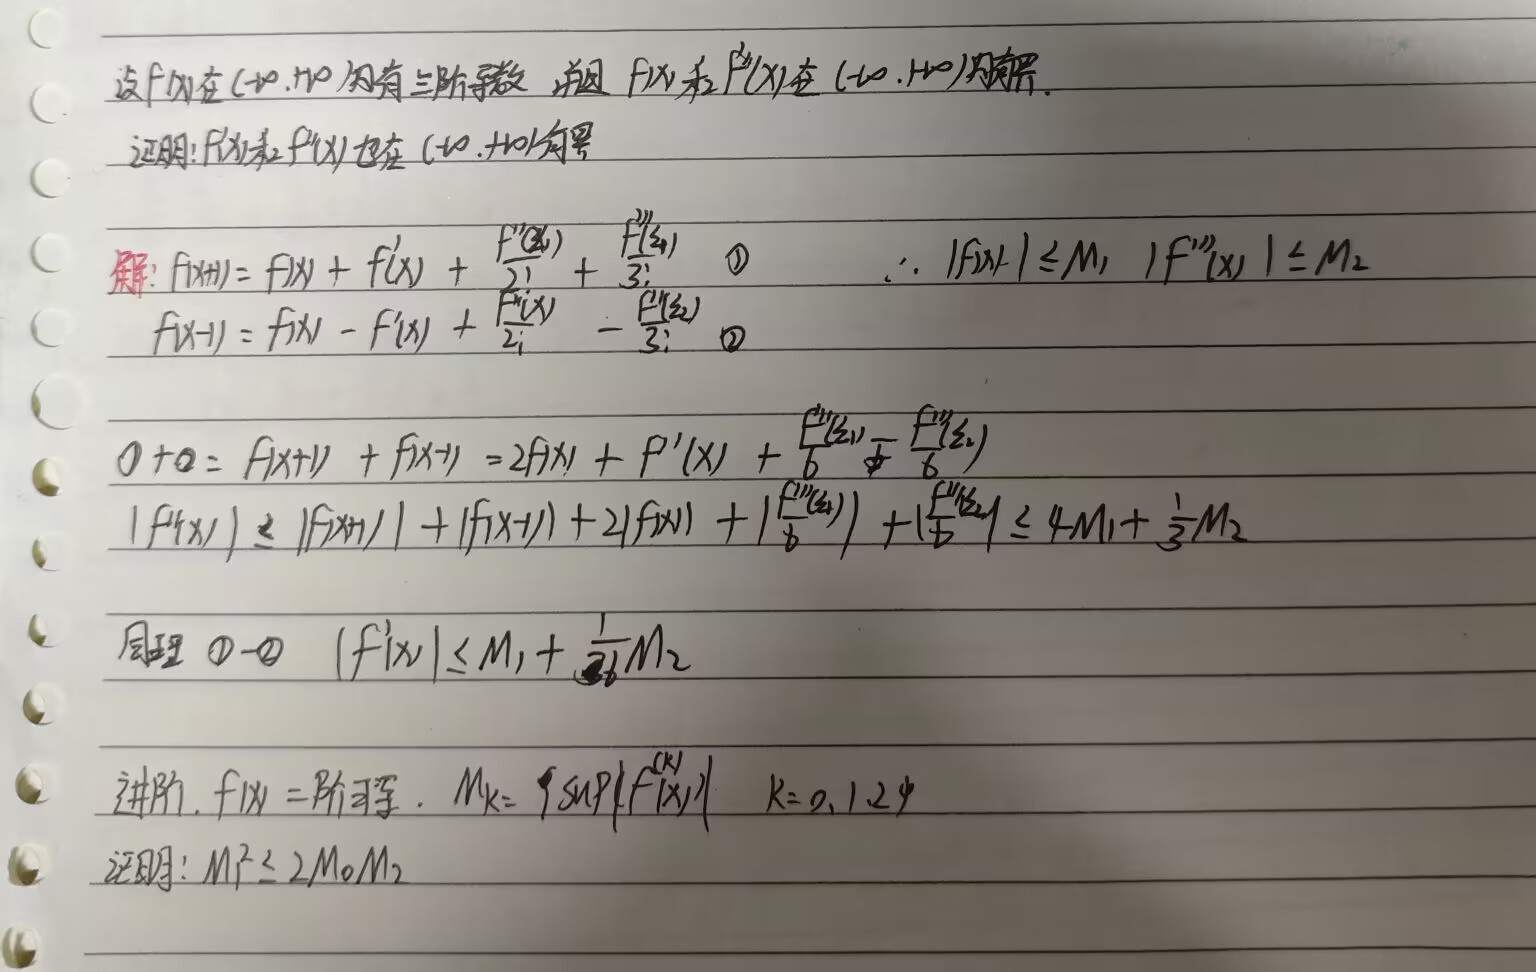 设f(x)在(-∞,+∞)内有三阶导数 并且 f(x)和f'''(x)在(-∞,+∞)内有界.
证明:f'(x)和f''(x)也在(-∞,+∞)有界
解: f(x+1) = f(x) + f'(x) + f''(x)/2! + f'''(ξ₁)/3! ① ∴ |f(x)| ≤ M₁ |f'''(x)| ≤ M₂
f(x-1) = f(x) - f'(x) + f''(x)/2! - f'''(ξ₂)/3! ②
①+② = f(x+1) + f(x-1) = 2f(x) + f''(x) + f'''(ξ₁)/6 - f'''(ξ₂)/6
|f''(x)| ≤ |f(x+1)| + |f(x-1)| + 2|f(x)| + |f'''(ξ₁)/6| + |f'''(ξ₂)/6| ≤ 4M₁ + 1/3 M₂
同理 ①-② |f'(x)| ≤ M₁ + 1/6 M₂
进阶. f(x)二阶可导. Mₖ= sup|f⁽ᵏ⁾(x)| k=0,1,2
证明: M₁² ≤ 2M₀M₂